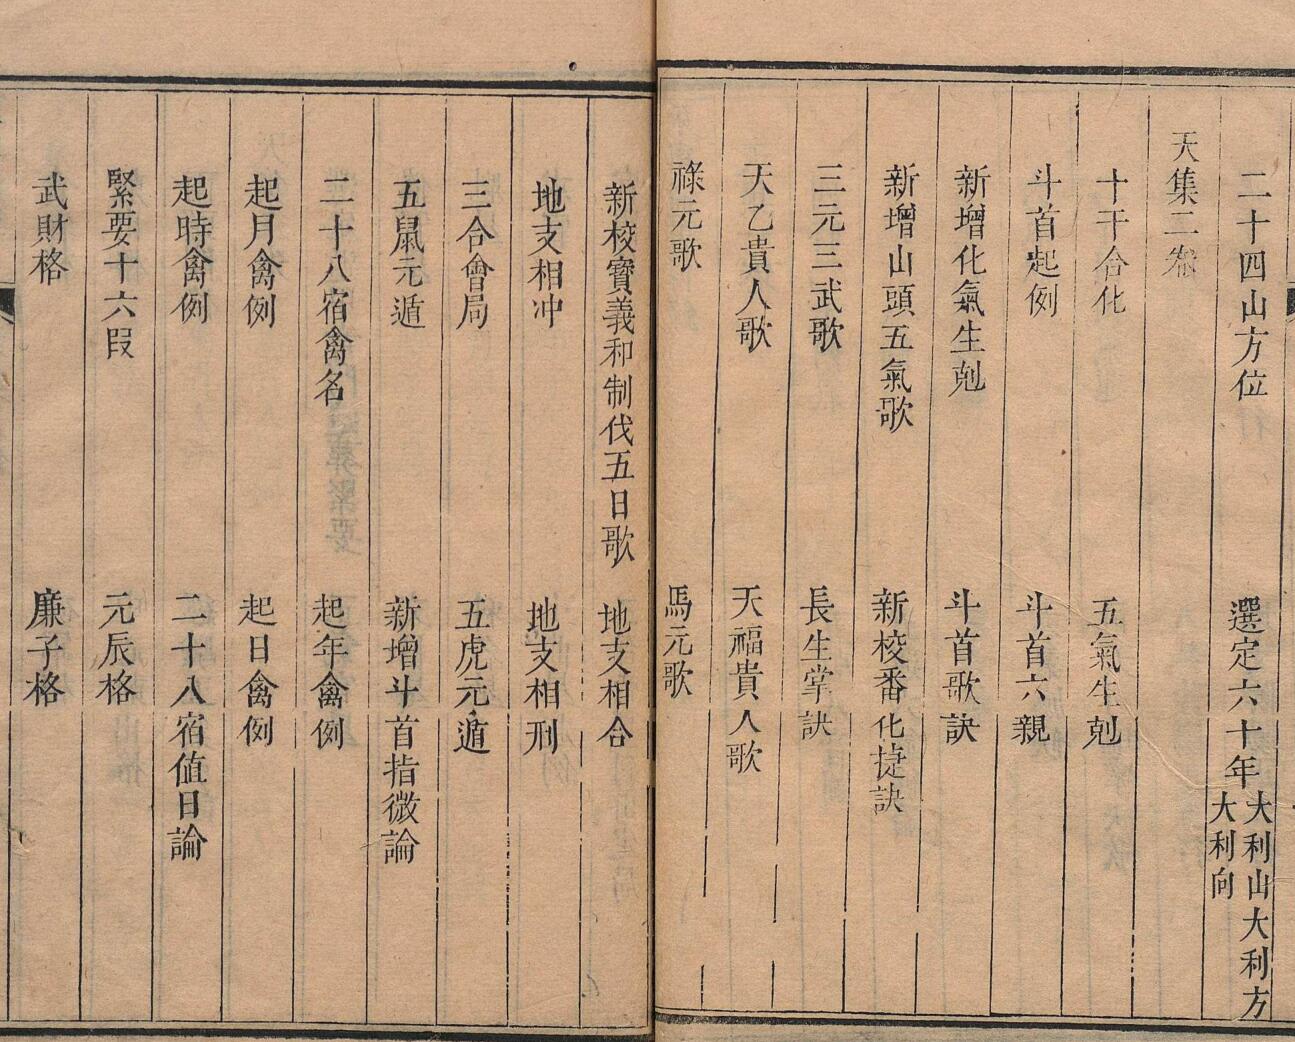 二十四山方位　選定六十年大利山大利方大利向
天集二卷
十干合化　五氣生尅
斗首起例　斗首六親
新增化氣生尅　斗首歌訣
新增山頭五氣歌　新校番化捷訣
三元三武歌　長生掌訣
天乙貴人歌　天福貴人歌
祿元歌　馬元歌
新校寶義和制伐五日歌　地支相合
地支相冲　地支相刑
三合會局　五虎元遁
五鼠元遁　新增斗首指微論
二十八宿禽名　起年禽例
起月禽例　起日禽例
起時禽例　二十八宿值日論
緊要十六段　元辰格
武財格　廉子格